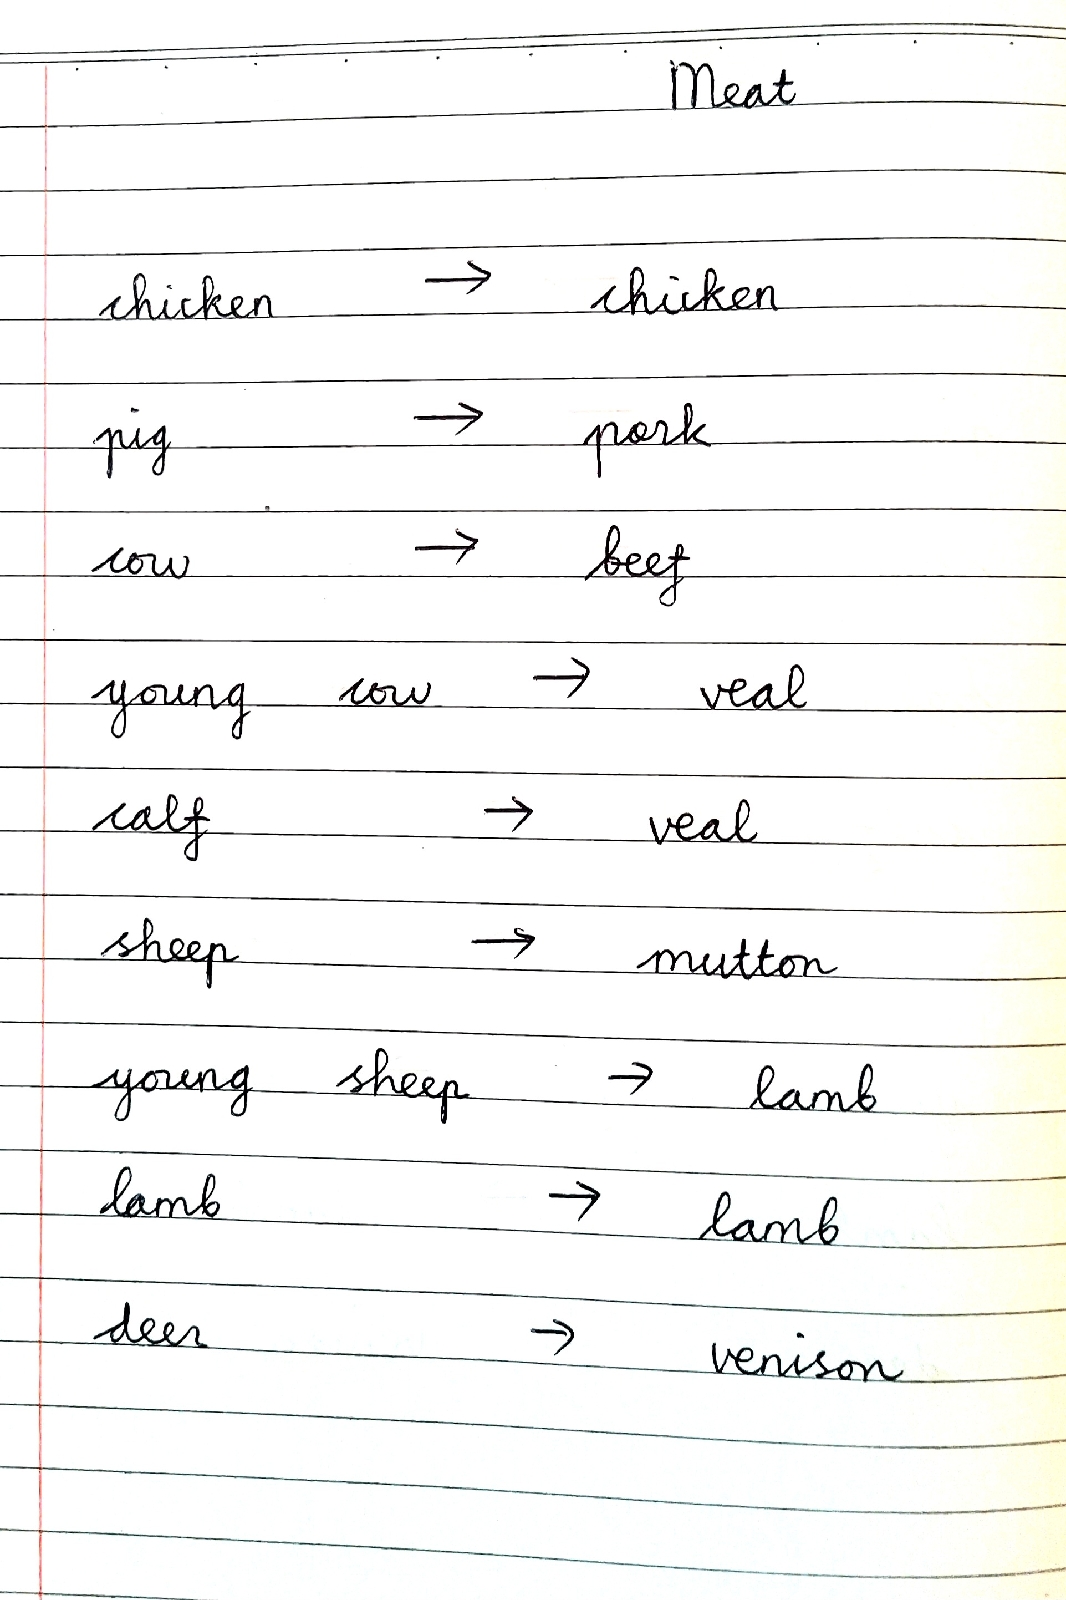 Meat
chicken → chicken
pig → pork
cow → beef
young cow → veal
calf → veal
sheep → mutton
young sheep → lamb
lamb → lamb
deer → venison